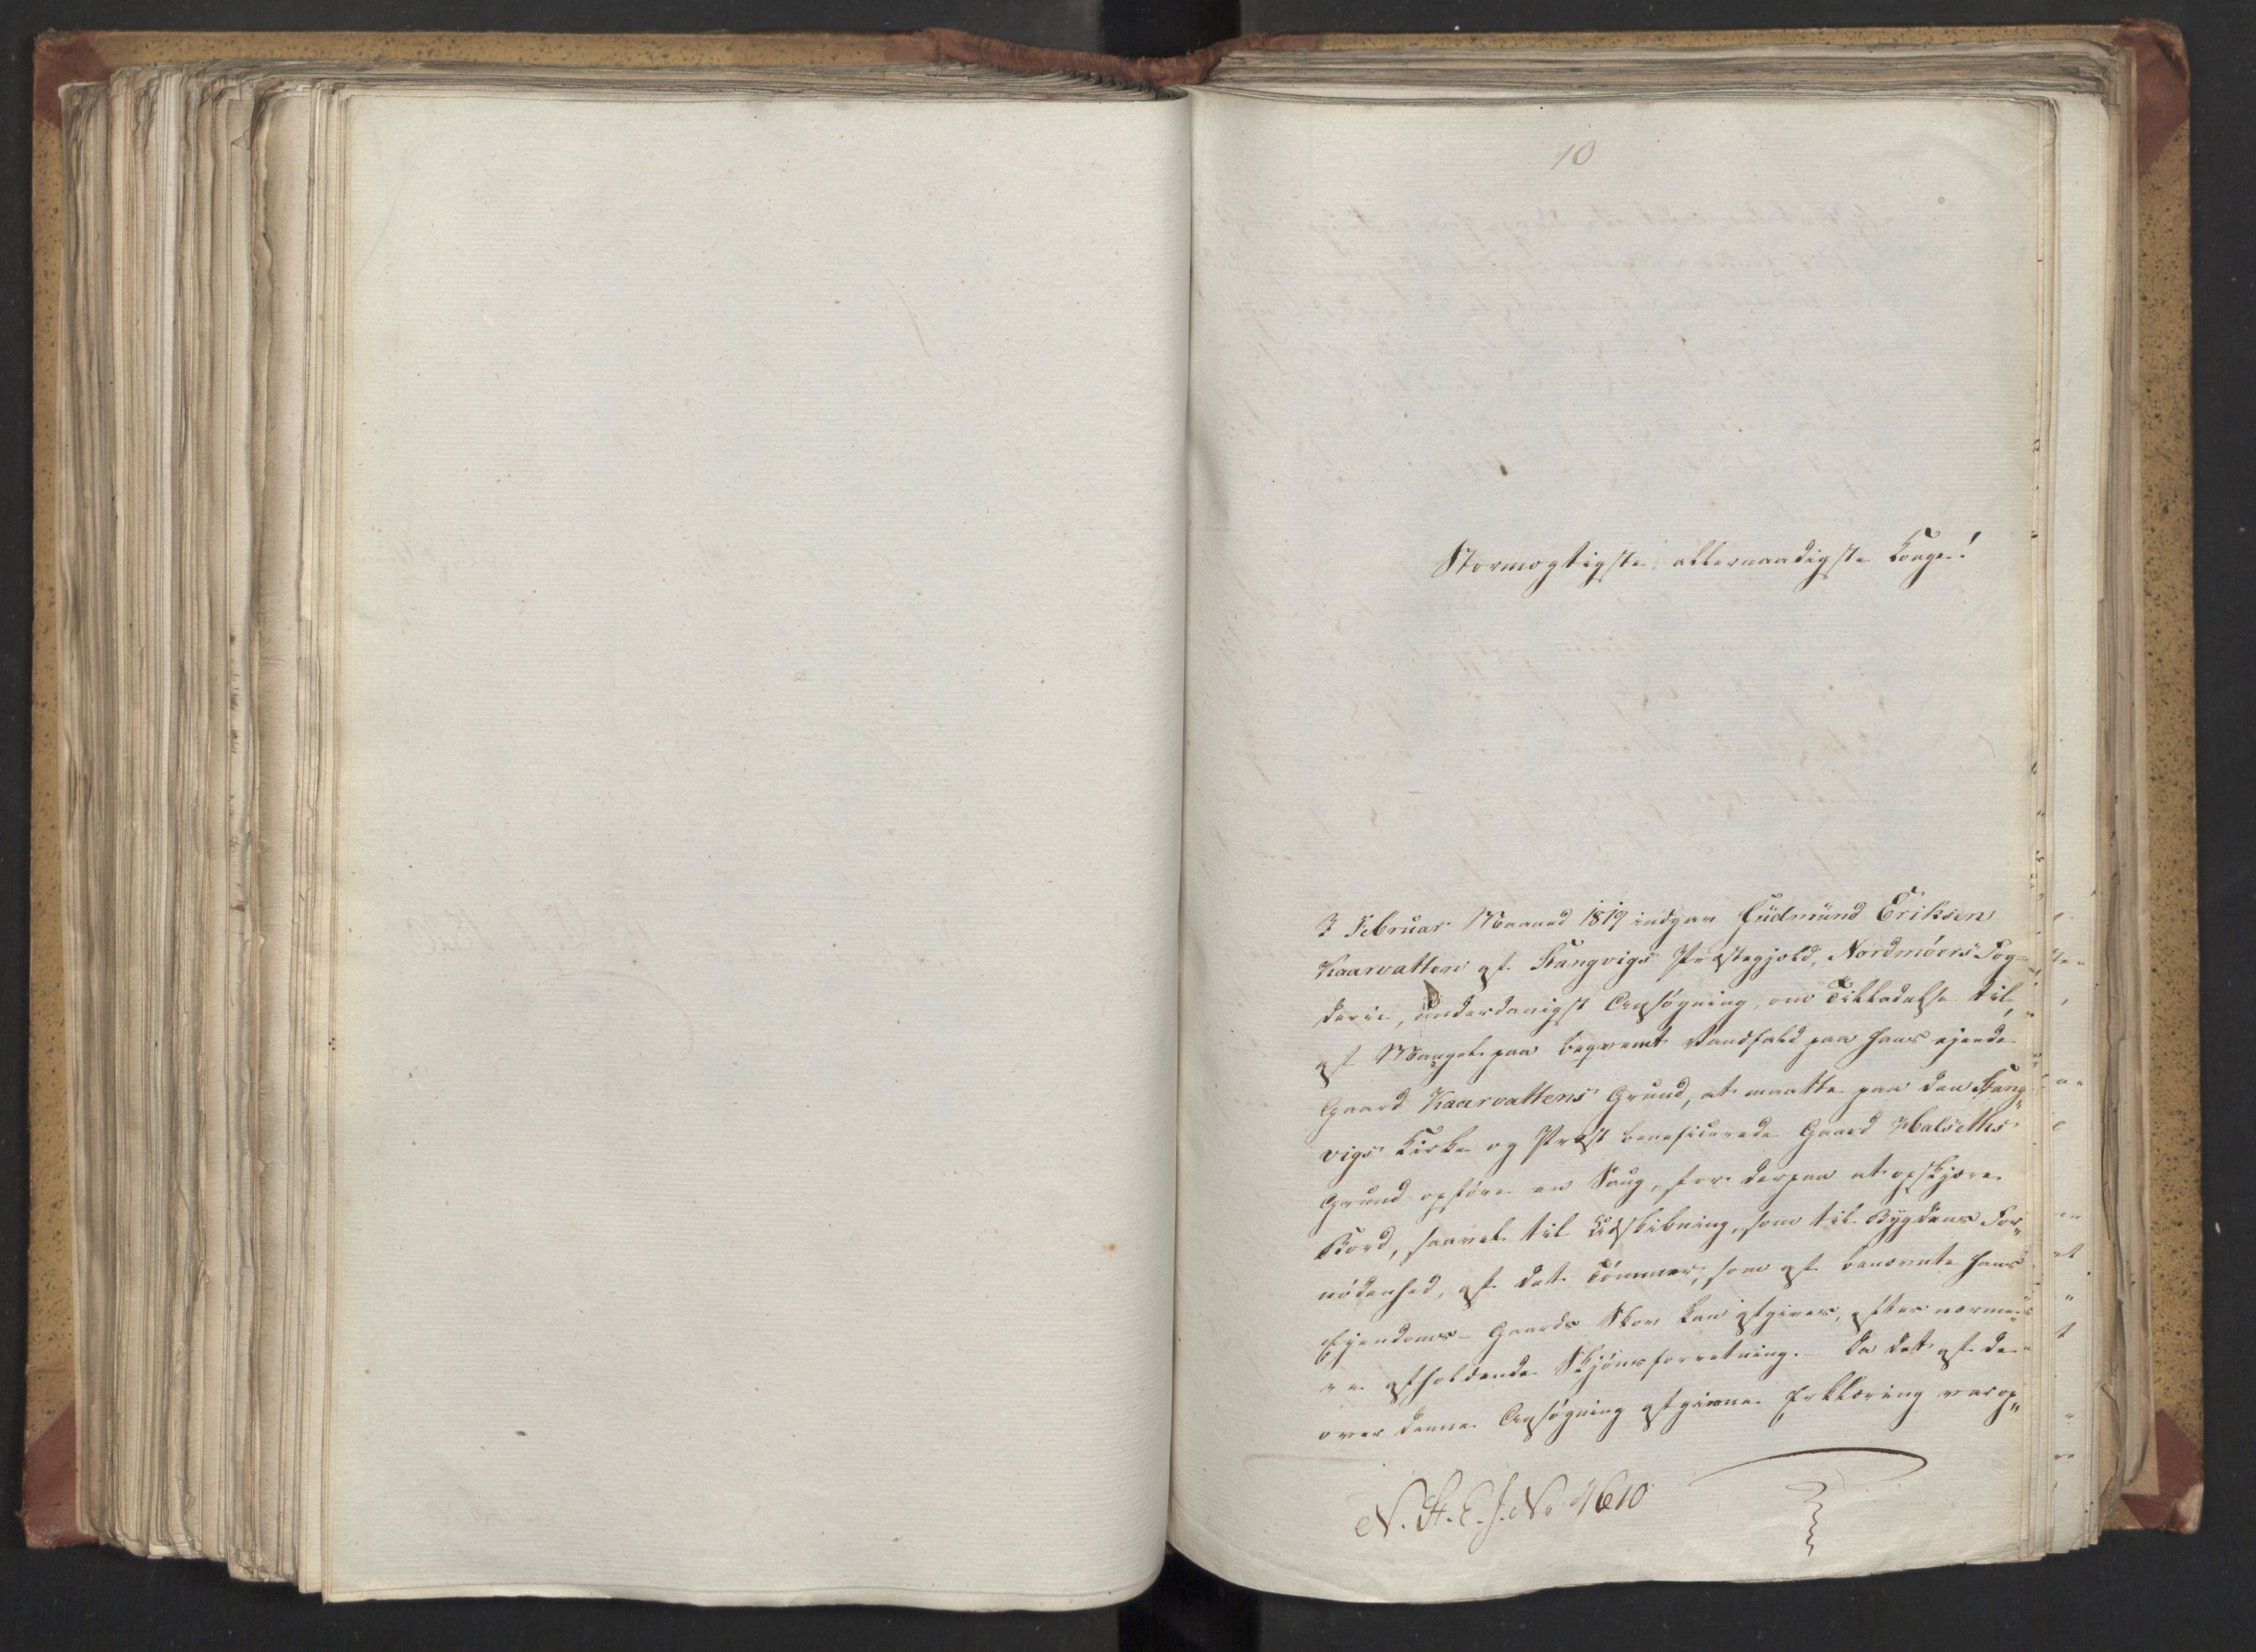 10
Stormægtigste, allernaadigste Konge!
I Februar Maaned 1819 indgav Gudmund Eriksen
Kaarvatten af Stangvigs Præstegjæld, Nordmöers Fog-
derie, underdanigst Ansögning, om Tilladelse til,
af Mangel paa beqvemt Vandfald paa hans ejende
Gaard Kaarvattens Grund, at maatte paa den Stang„
vigs Kirke og Præst beneficerede Gaard Halsetths
Grund opföre en Saug, for derpaa at opskjære
Bord, saavel til Udskibning, som til Bygdens For„
nödenhed, af det Tömmer, som af benævnte hans
Ejendoms-Gaards Skov kan afgives, efter nærme„
re afholdende Skjönsforretning. Da det af de
over denne Ansögning afgivne Erklæring var op„
N. St. E. J. No 4610